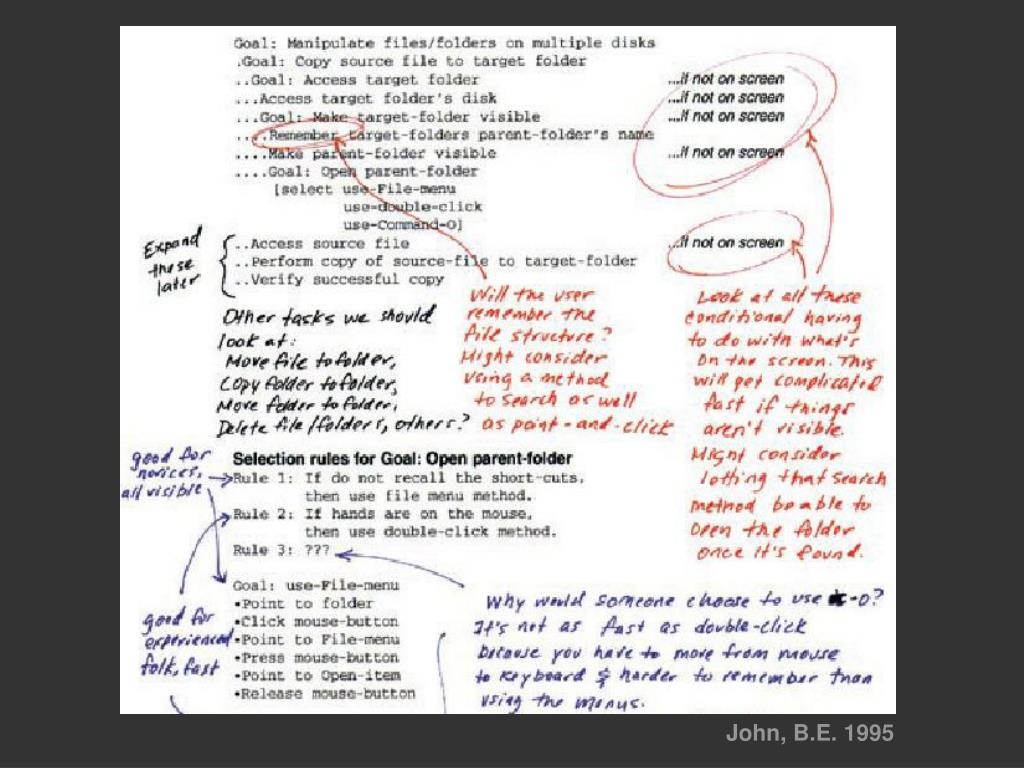 Goal: Manipulate files/folders on multiple disks
.Goal: Copy source file to target folder
..Goal: Access target folder ...if not on screen
...Access target folder's disk ...if not on screen
...Goal: Make target-folder visible ...if not on screen
....Remember target-folders parent-folder's name
....Make parent-folder visible ...if not on screen
....Goal: Open parent-folder
[select use-File-menu
use-double-click
use-Command-O]
..Access source file ...if not on screen
..Perform copy of source-file to target-folder
..Verify successful copy
Expand
these
later
Other tasks we should
look at:
Move file to folder,
Copy folder to folder,
Move folder to folder,
Delete file/folders, others?
Will the user
remember the
file structure?
Might consider
using a method
to search as well
as point-and-click
Look at all these
conditional having
to do with what's
on the screen. This
will get complicated
fast if things
aren't visible.
Might consider
letting that search
method be able to
open the folder
once it's found.
good for
novices,
all visible
Selection rules for Goal: Open parent-folder
Rule 1: If do not recall the short-cuts,
then use file menu method.
Rule 2: If hands are on the mouse,
then use double-click method.
Rule 3: ???
good for
experienced
folk, fast
Goal: use-File-menu
•Point to folder
•Click mouse-button
•Point to File-menu
•Press mouse-button
•Point to Open-item
•Release mouse-button
Why would someone choose to use -O?
It's not as fast as double-click
because you have to move from mouse
to keyboard & harder to remember than
using the menus.
John, B.E. 1995